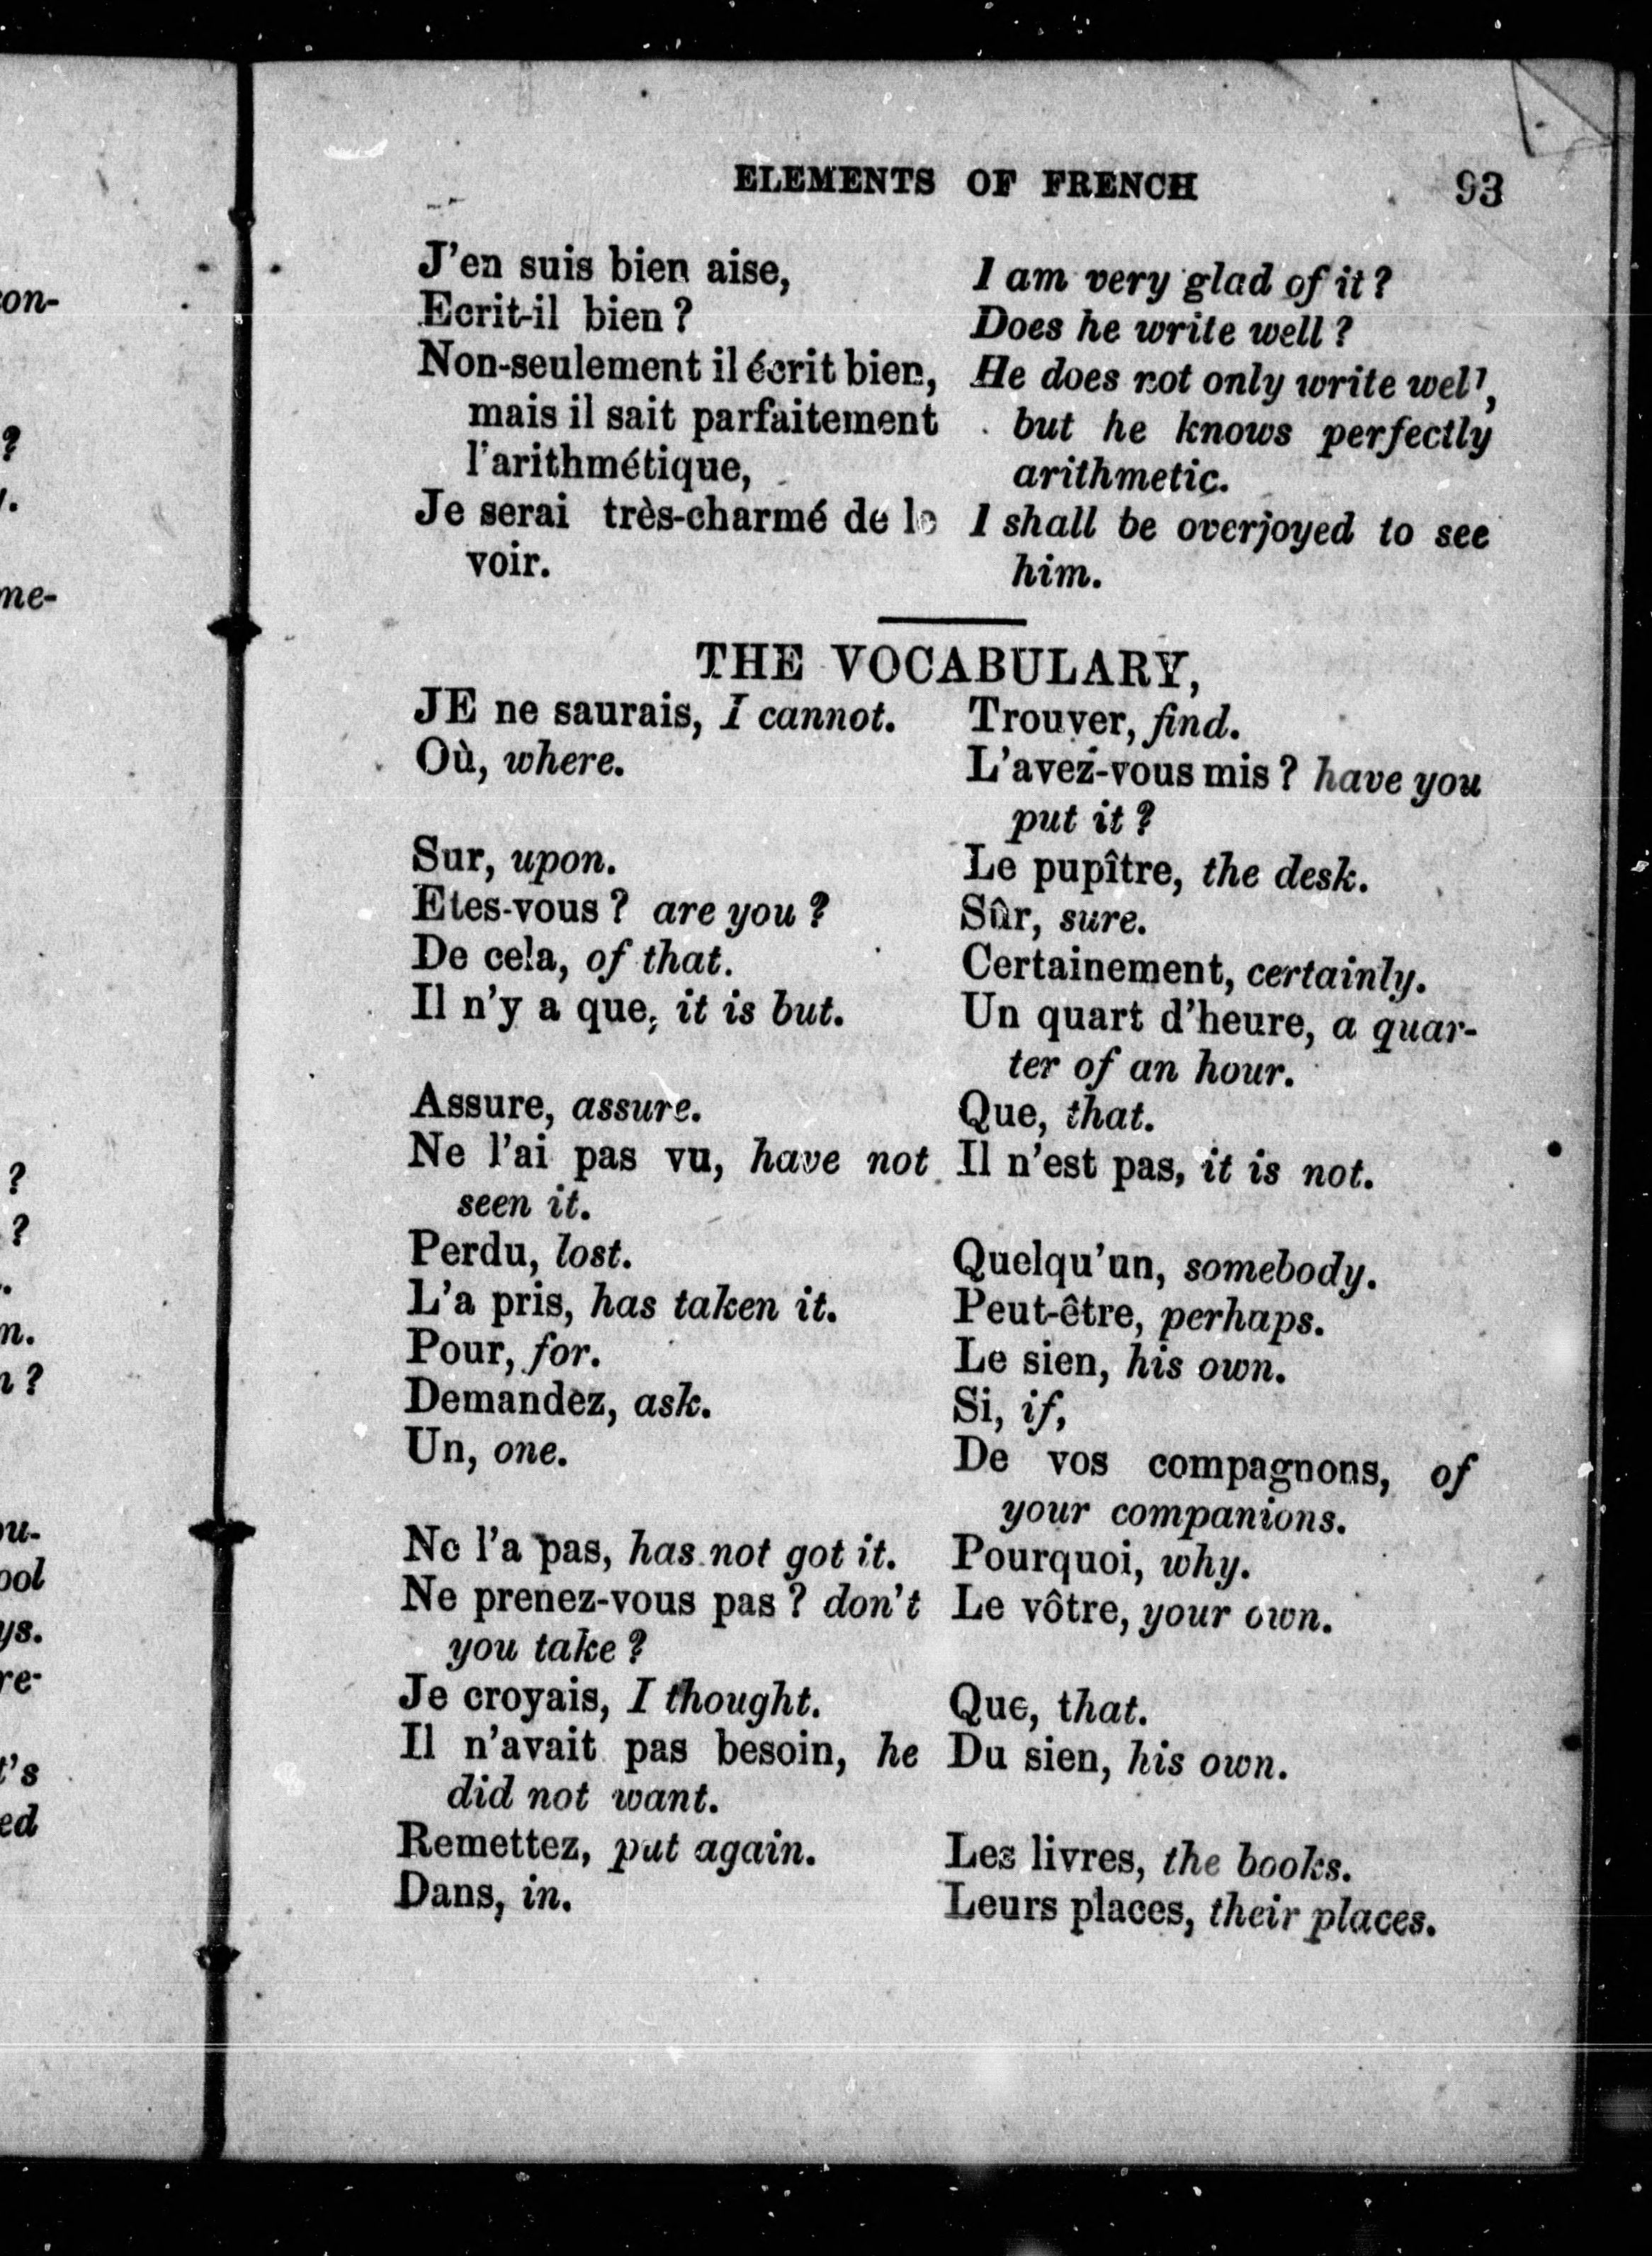 ELEMENTS OF FRENCH 93
J'en suis bien aise, I am very glad of it?
Ecrit-il bien? Does he write well?
Non-seulement il écrit bien, He does not only write well,
mais il sait parfaitement but he knows perfectly
l'arithmétique, arithmetic.
Je serai très-charmé de le I shall be overjoyed to see
voir. him.
THE VOCABULARY,
JE ne saurais, I cannot. Trouver, find.
Où, where. L'avez-vous mis? have you
put it?
Sur, upon. Le pupître, the desk.
Etes-vous? are you? Sûr, sure.
De cela, of that. Certainement, certainly.
Il n'y a que, it is but. Un quart d'heure, a quar-
ter of an hour.
Assure, assure. Que, that.
Ne l'ai pas vu, have not Il n'est pas, it is not.
seen it.
Perdu, lost. Quelqu'un, somebody.
L'a pris, has taken it. Peut-être, perhaps.
Pour, for. Le sien, his own.
Demandez, ask. Si, if,
Un, one. De vos compagnons, of
your companions.
Ne l'a pas, has not got it. Pourquoi, why.
Ne prenez-vous pas? don't Le vôtre, your own.
you take?
Je croyais, I thought. Que, that.
Il n'avait pas besoin, he Du sien, his own.
did not want.
Remettez, put again. Les livres, the books.
Dans, in. Leurs places, their places.